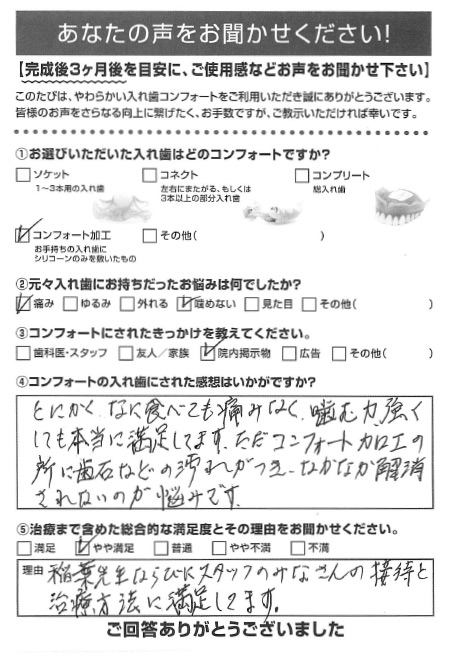 あなたの声をお聞かせください!
【完成後3ヶ月後を目安に、ご使用感などお声をお聞かせ下さい】
このたびは、やわらかい入れ歯コンフォートをご利用いただき誠にありがとうございます。
皆様のお声をさらなる向上に繋げたく、お手数ですが、ご教示いただければ幸いです。
①お選びいただいた入れ歯はどのコンフォートですか?
□ソケット □コネクト □コンプリート
1〜3本用の入れ歯 左右にまたがる、もしくは3本以上の部分入れ歯 総入れ歯
☑コンフォート加工 □その他( )
お手持ちの入れ歯に
シリコーンのみを敷いたもの
②元々入れ歯にお持ちだったお悩みは何でしたか?
☑痛み □ゆるみ □外れる ☑噛めない □見た目 □その他( )
③コンフォートにされたきっかけを教えてください。
□歯科医・スタッフ □友人/家族 ☑院内掲示物 □広告 □その他( )
④コンフォートの入れ歯にされた感想はいかがですか?
とにかく、なに食べても痛みなく、噛む力、強く
しても本当に満足してます。ただコンフォート加工の
所に歯石などの汚れがつき、なかなか解消
されないのが悩みです。
⑤治療まで含めた総合的な満足度とその理由をお聞かせください。
□満足 ☑やや満足 □普通 □やや不満 □不満
理由 稲葉先生ならびにスタッフのみなさんの接待と
治療方法に満足してます。
ご回答ありがとうございました